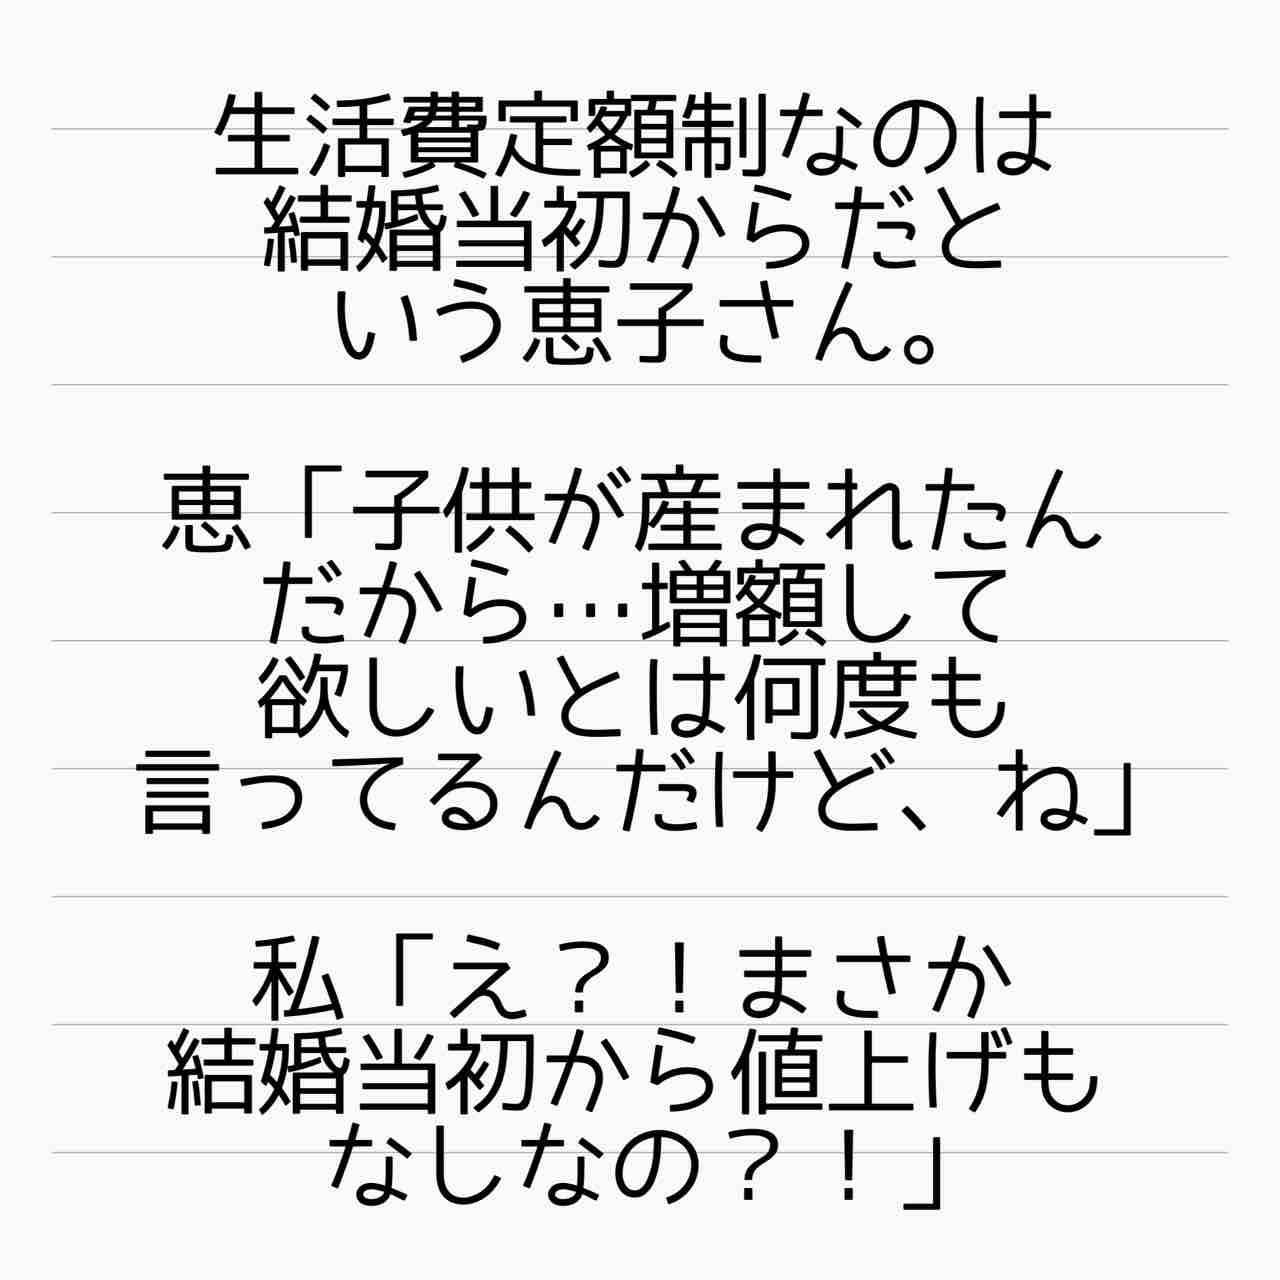 生活費定額制なのは
結婚当初からだと
いう恵子さん。
恵「子供が産まれたん
だから…増額して
欲しいとは何度も
言ってるんだけど、ね」
私「え？！まさか
結婚当初から値上げも
なしなの？！」